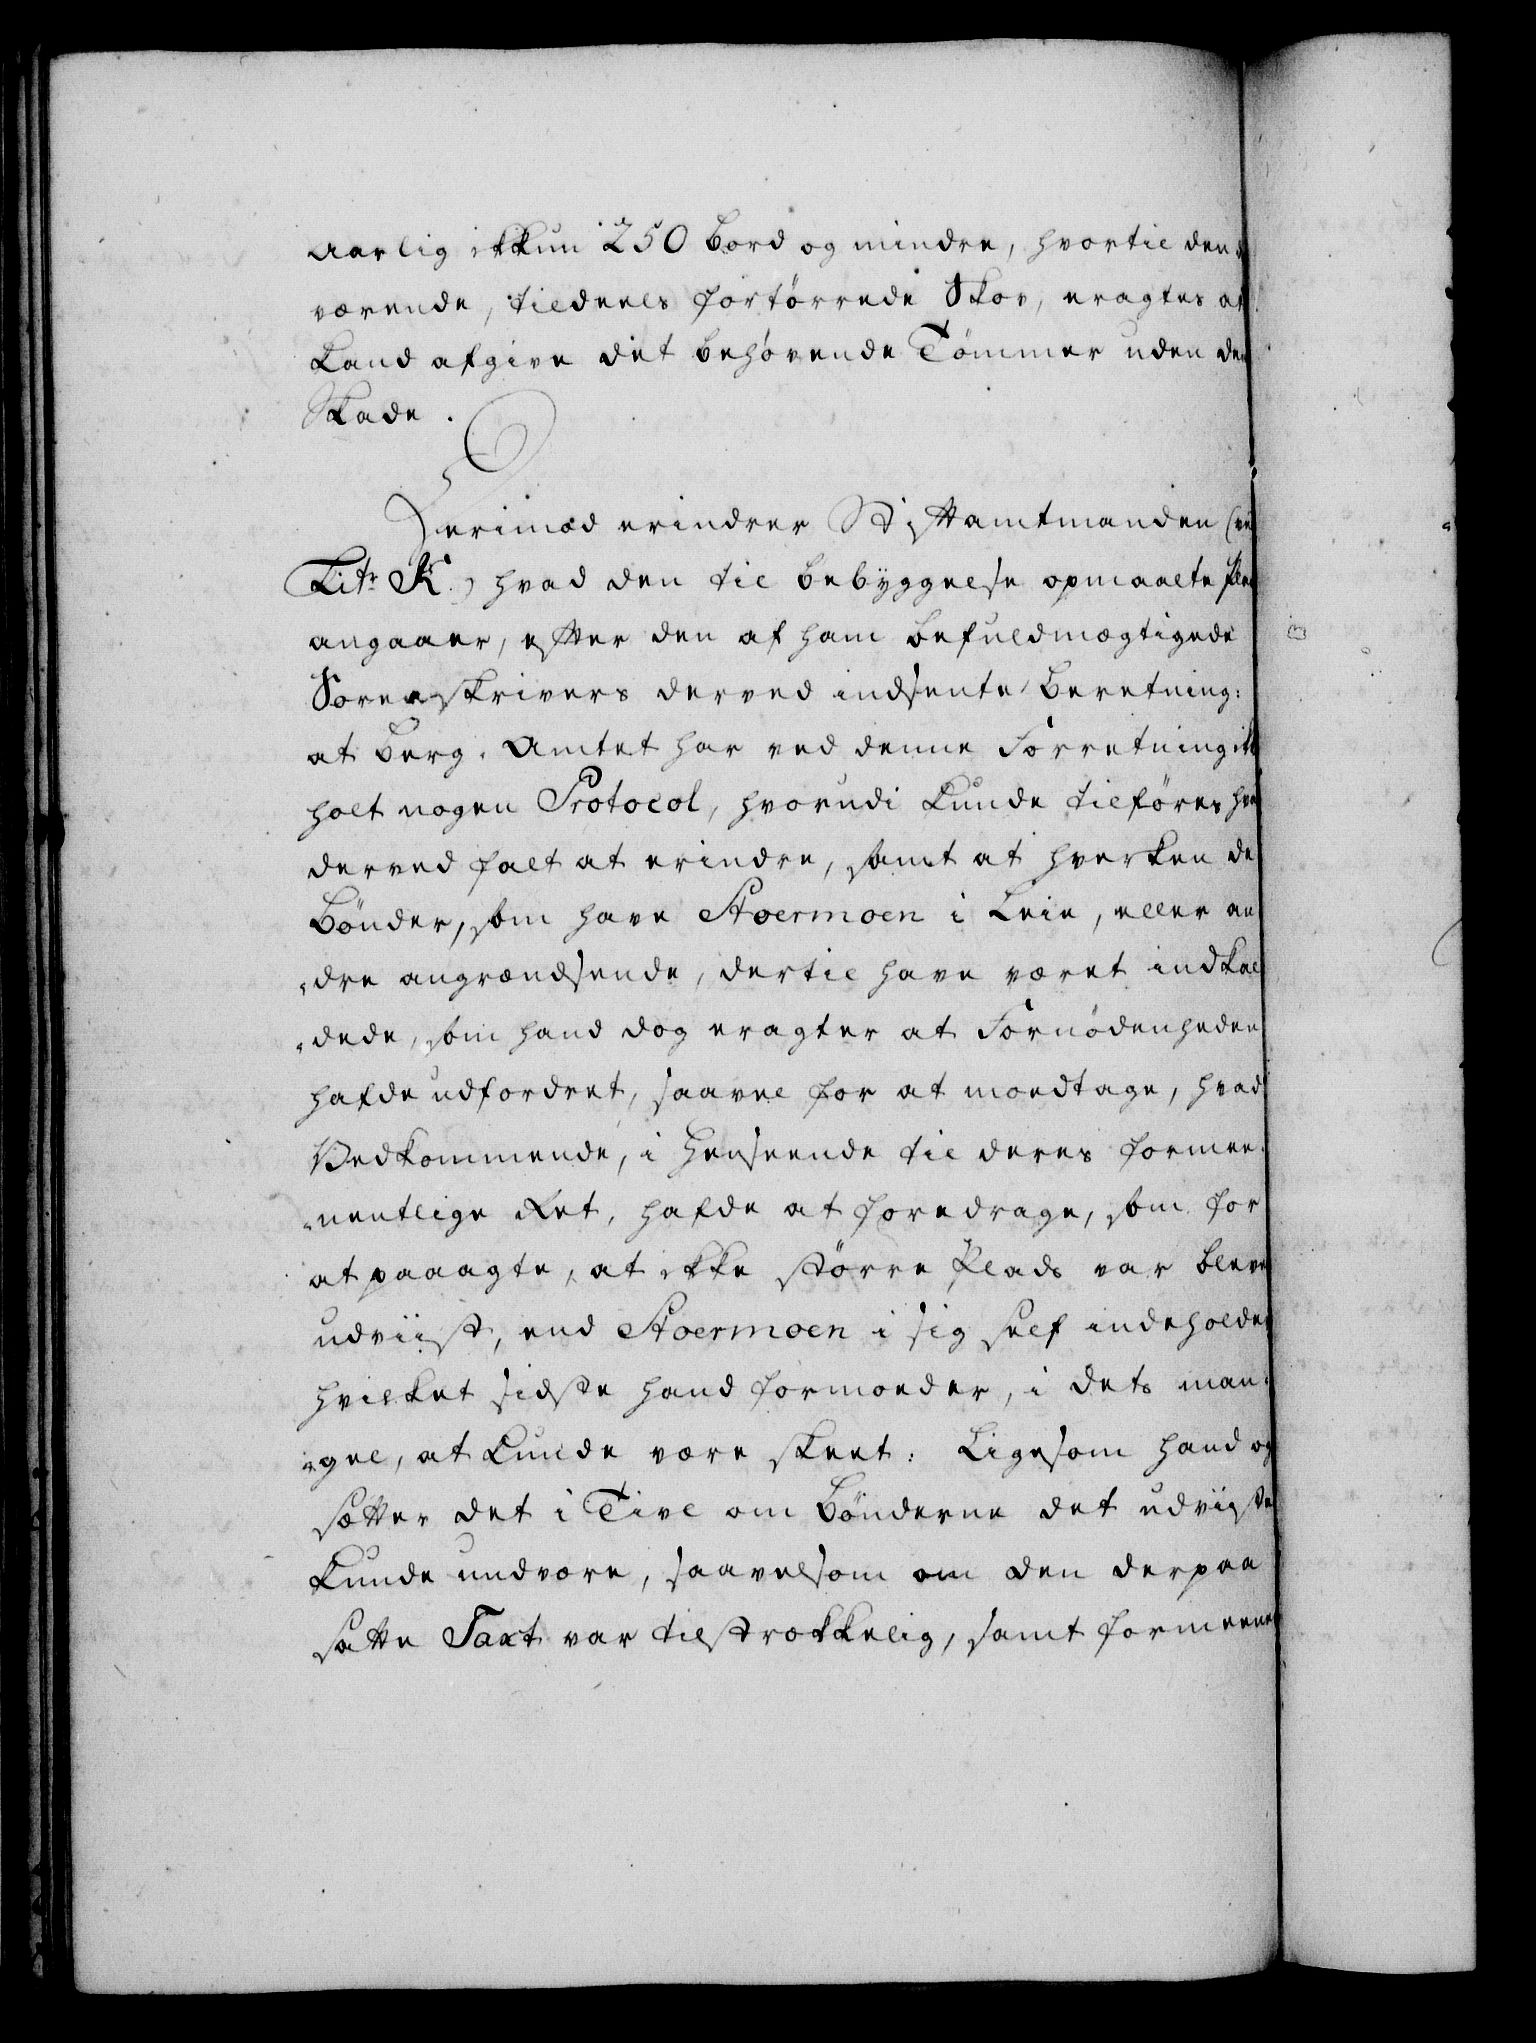 aarlig ikkun 250 bord og mindre, hvortil den
værende, tildeels fortørrede Skov, eragtes at
kand afgive det behøvende Tømmer uden den
Skade.
Herimod erindrer Stiftamtmanden (ved
Litr K.) hvad den til bebyggelse opmaalte Plads
angaaer, efter den af ham befuldmægtigede
Sorenskrivers derved indsente Beretning:
at Berg-Amtet har ved denne Forretning ikke
holt nogen Protocol, hvorudi kunde tilføres hvad
derved falt at erindre, samt at hverken de
Bønder, som have Stoermoen i Leie, eller an-
dre angrændsende, dertil have været indkal-
dede, som hand dog eragter at Fornødenheden
hafde udfordret, saavel for at modtage, hvad
Vedkommende, i Henseende til deres formee-
nentlige Ret, hafde at foredrage, som for
at paaagte, at ikke större Plads var bleven
udviist, end Stoermoen i sig self indeholder
hvilket sidste hand formoder, i dets man-
gel, at kunde være skeet: Ligesom hand og
sætter det i Tivl om Bønderne det udviiste
kunde undvære, saavelsom om den derpaa
satte Taxt var tilstrækkelig, samt formeener